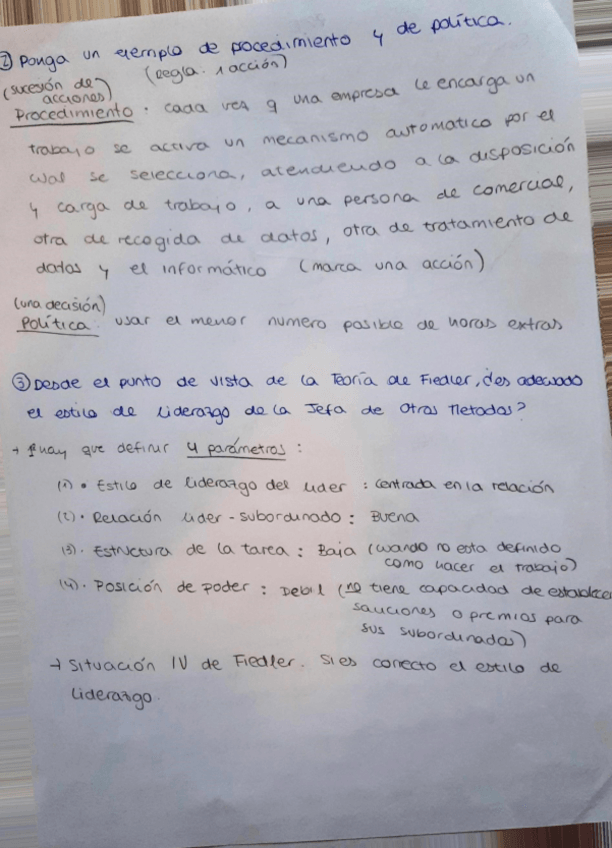 ② Ponga un ejemplo de procedimiento y de política.
(sucesión de acciones) (regla. 1 acción)
Procedimiento. cada vez q una empresa le encarga un
trabajo se activa un mecanismo automatico por el
cual se selecciona, atendiendo a la disposición
y carga de trabajo, a una persona de comercial,
otra de recogida de datos, otra de tratamiento de
datos y el informático (marca una acción)
(una decisión)
Política. usar el menor numero posible de horas extras
③ Desde el punto de vista de la Teoría de Fiedler, ¿es adecuado
el estilo de liderazgo de la Jefa de Otras Metodas?
→ Hay que definir 4 parámetros:
(1) • Estilo de liderazgo del lider : centrada en la relación
(2) • Relación lider - subordinado : Buena
(3) • Estructura de la tarea : Baja (cuando no esta definido
como hacer el trabajo)
(4) • Posición de poder : Debil (no tiene capacidad de establecer
sanciones o premios para
sus subordinadas)
→ Situación IV de Fiedler. Si es correcto el estilo de
liderazgo.